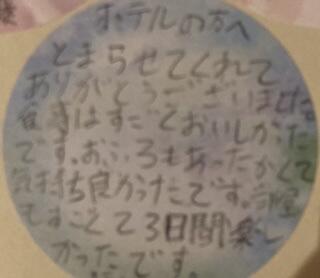 ホテルの方へ
とまらせてくれて
ありがとうございました。
食事はすごくおいしかった
です。おふろもあったかくて
気持ち良かったです。部屋
もすごくて3日間楽し
かったです。